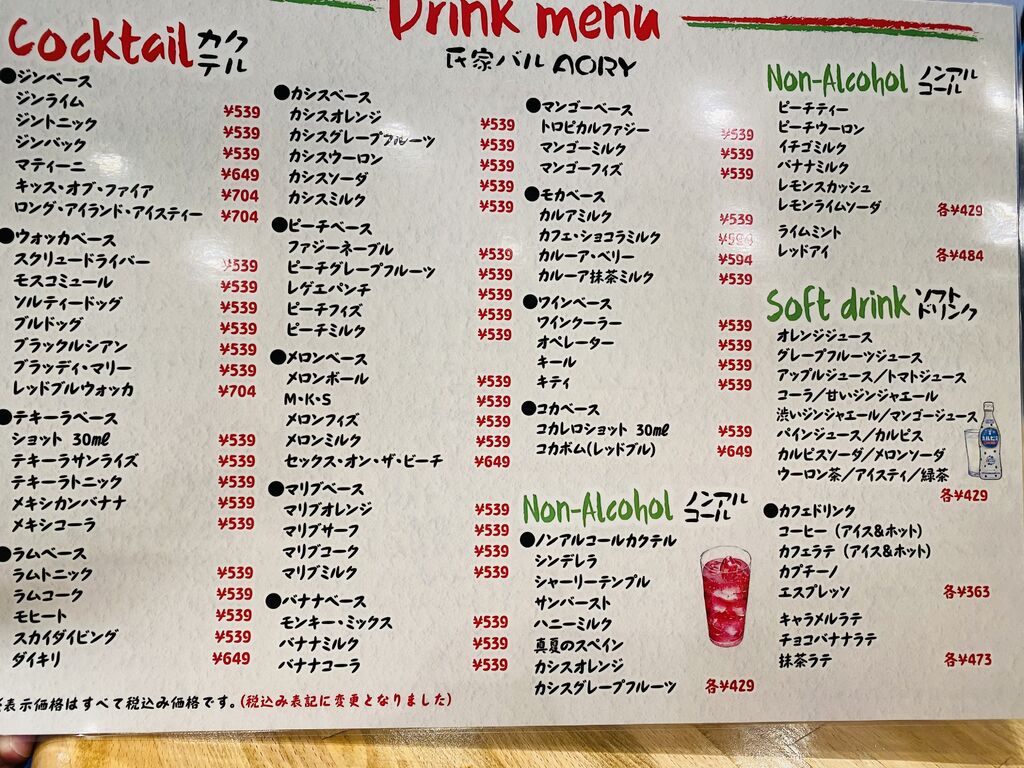 Drink menu
氏家バル AORY
Cocktail カクテル
●ジンベース
ジンライム ¥539
ジントニック ¥539
ジンバック ¥539
マティーニ ¥649
キッス・オブ・ファイア ¥704
ロング・アイランド・アイスティー ¥704
●ウォッカベース
スクリュードライバー ¥539
モスコミュール ¥539
ソルティードッグ ¥539
ブルドッグ ¥539
ブラックルシアン ¥539
ブラッディ・マリー ¥539
レッドブルウォッカ ¥704
●テキーラベース
ショット 30㎖ ¥539
テキーラサンライズ ¥539
テキーラトニック ¥539
メキシカンバナナ ¥539
メキシコーラ ¥539
●ラムベース
ラムトニック ¥539
ラムコーク ¥539
モヒート ¥539
スカイダイビング ¥539
ダイキリ ¥649
●カシスベース
カシスオレンジ ¥539
カシスグレープフルーツ ¥539
カシスウーロン ¥539
カシスソーダ ¥539
カシスミルク ¥539
●ピーチベース
ファジーネーブル ¥539
ピーチグレープフルーツ ¥539
レゲエパンチ ¥539
ピーチフィズ ¥539
ピーチミルク ¥539
●メロンベース
メロンボール ¥539
M・K・S ¥539
メロンフィズ ¥539
メロンミルク ¥539
セックス・オン・ザ・ビーチ ¥649
●マリブベース
マリブオレンジ ¥539
マリブサーフ ¥539
マリブコーク ¥539
マリブミルク ¥539
●バナナベース
モンキー・ミックス ¥539
バナナミルク ¥539
バナナコーラ ¥539
●マンゴーベース
トロピカルファジー ¥539
マンゴーミルク ¥539
マンゴーフィズ ¥539
●モカベース
カルアミルク ¥539
カフェ・ショコラミルク ¥594
カルーア・ベリー ¥594
カルーア抹茶ミルク ¥539
●ワインベース
ワインクーラー ¥539
オペレーター ¥539
キール ¥539
キティ ¥539
●コカベース
コカレロショット 30㎖ ¥539
コカボム(レッドブル) ¥649
Non-Alcohol ノンアルコール
●ノンアルコールカクテル
シンデレラ
シャーリーテンプル
サンバースト
ハニーミルク
真夏のスペイン
カシスオレンジ
カシスグレープフルーツ 各¥429
Non-Alcohol ノンアルコール
ピーチティー
ピーチウーロン
イチゴミルク
バナナミルク
レモンスカッシュ
レモンライムソーダ 各¥429
ライムミント
レッドアイ 各¥484
Soft drink ソフトドリンク
オレンジジュース
グレープフルーツジュース
アップルジュース／トマトジュース
コーラ／甘いジンジャエール
渋いジンジャエール／マンゴージュース
パインジュース／カルピス
カルピスソーダ／メロンソーダ
ウーロン茶／アイスティ／緑茶
各¥429
カルピス
●カフェドリンク
コーヒー（アイス&ホット）
カフェラテ（アイス&ホット）
カプチーノ
エスプレッソ 各¥363
キャラメルラテ
チョコバナナラテ
抹茶ラテ 各¥473
表示価格はすべて税込み価格です。(税込み表記に変更となりました)